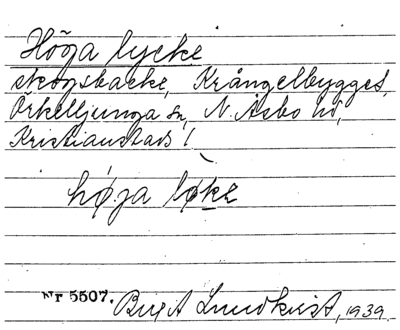 Höga lycke
skogsbacke, Krångelbygget,
Örkelljunga sn, N. Åsbo hd,
Kristianstads l
hø̄ja løke
Nr 5507. Birgit Lundkvist, 1939.